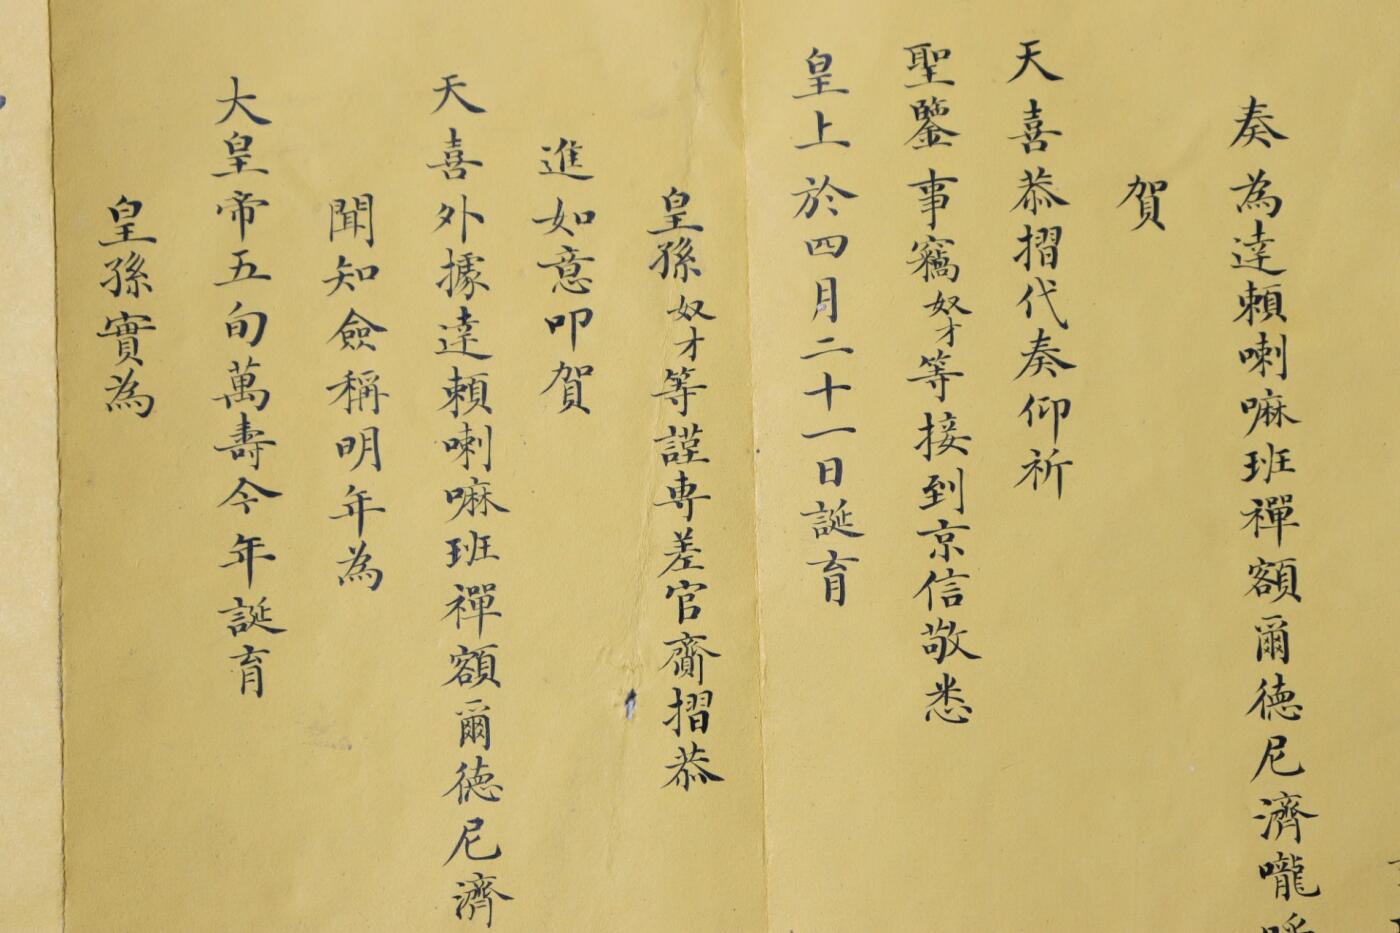 奏為達賴喇嘛班禪額爾德尼濟嚨呼
賀
天喜恭摺代奏仰祈
聖鑒事竊奴才等接到京信敬悉
皇上於四月二十一日誕育
皇孫奴才等謹專差官齎摺恭
進如意叩賀
天喜外據達賴喇嘛班禪額爾德尼濟
聞知僉稱明年為
大皇帝五旬萬壽今年誕育
皇孫實為